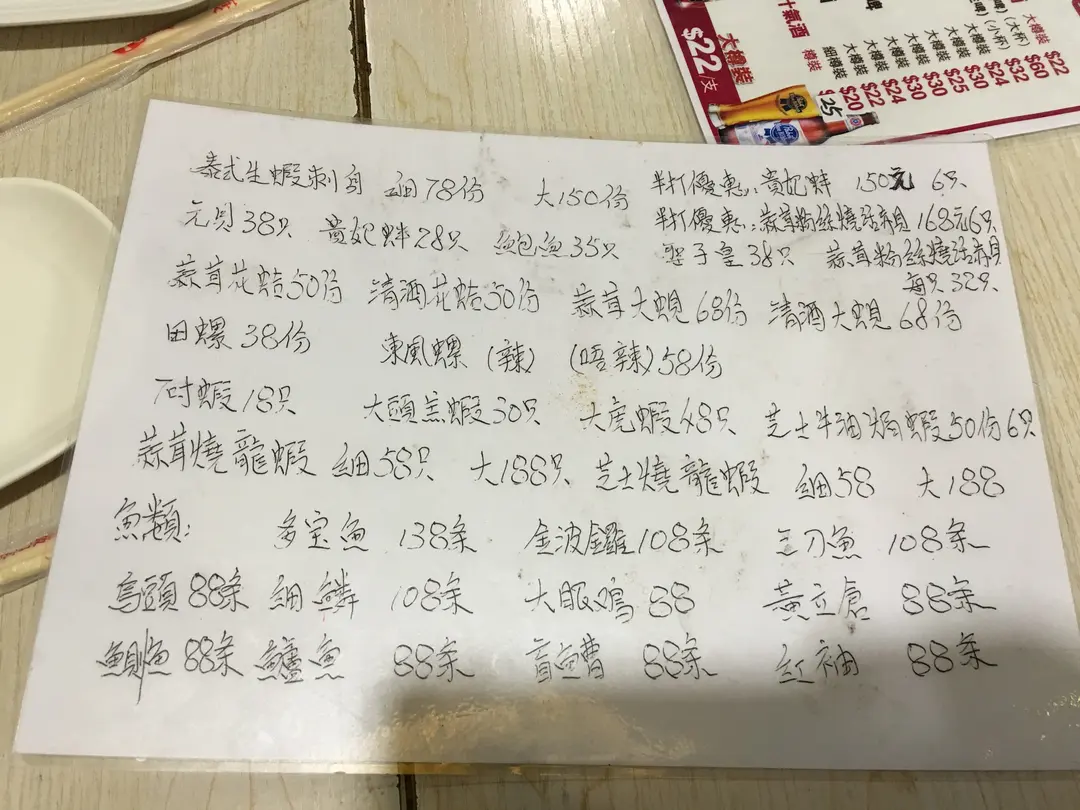 泰式生蝦刺身 細78份 大150份 半打優惠：貴妃蚌 150元 6只
元貝38只 貴妃蚌28只 鮑魚35只 半打優惠：蒜茸粉絲燒活扇貝 168元6只
聖子皇38只 蒜茸粉絲燒活扇貝 每只32只
蒜茸花蛤50份 清酒花蛤50份 蒜茸大蜆68份 清酒大蜆68份
田螺38份 東風螺(辣) (唔辣)58份
竹蝦18只 大頭羔蝦30只 大虎蝦48只 芝士牛油焗蝦50份6只
蒜茸燒龍蝦 細58只 大188只 芝士燒龍蝦 細58 大188
魚類： 多宝魚 138条 金波鑼108条 三刀魚 108条
烏頭88条 細鱗 108条 大眼鸡 88 黃立倉 88条
鰂魚88条 鱸魚 88条 盲鰽 88条 紅袖 88条
大樽裝
$22/支
汁氣酒
樽裝
細樽裝 $20
大樽裝 $22
大樽裝 $24
大樽裝 $30
大樽裝 $30
大樽裝 $25
大樽裝 $30
(小杯) $24
(大杯) $32
$60
大樽裝 $22
25